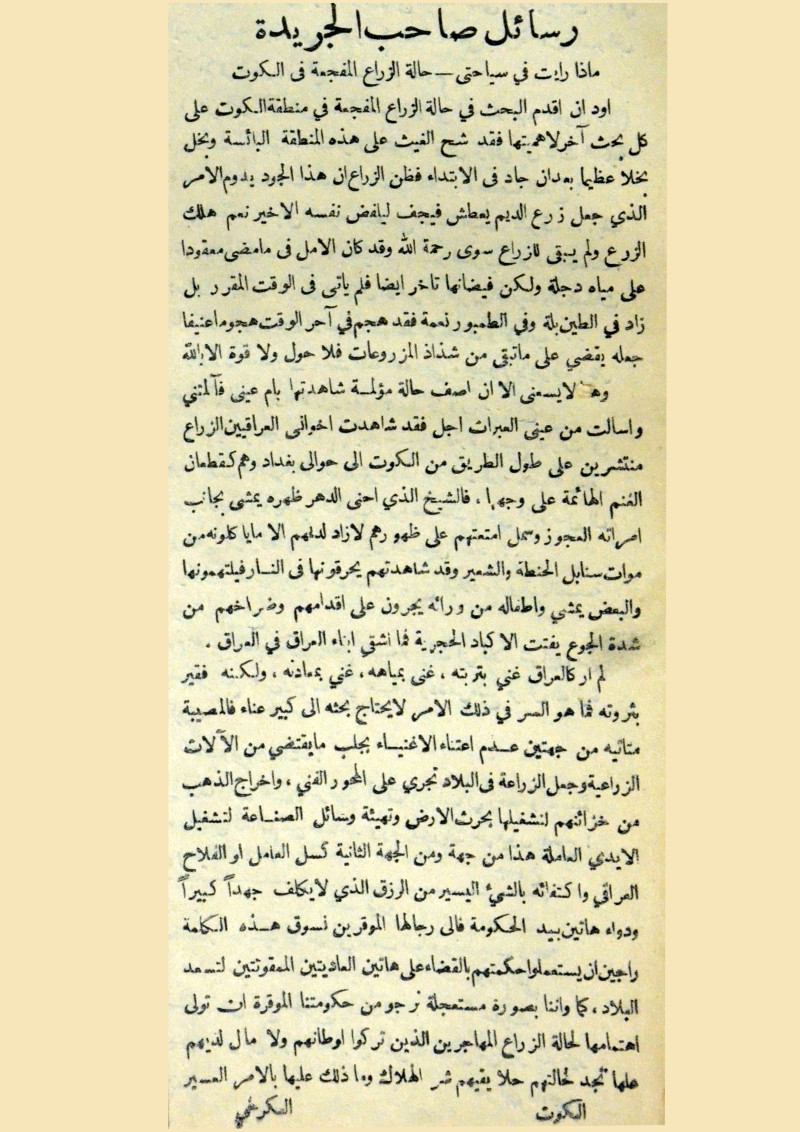 رسائل صاحب الجريدة
ماذا رايت في سياحتى — حالة الزراع المفجعة فى الكوت
اود ان اقدم البحث في حالة الزراع المفجعة في منطقة الكوت على
كل بحث آخر لاهميتها فقد شح الغيث على هذه المنطقة البائسة وبخل
بخلاً عظيما بعدان جاد فى الابتداء فظن الزراع ان هذا الجود يدوم الامر
الذي جعل زرع الديم يعطش فيجف ليلفض نفسه الاخير نعم هلك
الزرع ولم يبقى للزراع سوى رحمة الله وقد كان الامل فى مامضى معقودا
على مياه دجلة ولكن فيضانها تاخر ايضا فلم ياتى فى الوقت المقرر بل
زاد في الطين بلة وفي الطمبور نعمة فقد هجم في آحر الوقت هجوما عنيفا
جعله يقضي على ماتبقى من شذاذ المزروعات فلا حول ولا قوة الا بالله
لايسعنى الا ان اصف حالة مؤلمة شاهدتها بام عينى فآلمتني
واسالت من عينى العبرات اجل فقد شاهدت اخوانى العراقيين الزراع
منتشرين على طول الطريق من الكوت الى حوالى بغداد وهم كقطعان
الغنم الهائمة على وجهها ، فالشيخ الذي احنى الدهر ظهره يمشى بجانب
امراته العجوز وسمل امتعتهم على ظهورهم لازاد لديهم الا ماياكلونه من
موات سنابل الحنطة والشعير وقد شاهدتهم يحرقونها فى النار فيلتهمونها
والبعض يمشي واطفاله من ورائه يجرون على اقدامهم وضراخهم من
شدة الجوع يفتت الاكباد الحجرية فما اشقى ابناء العراق في العراق .
لم ار كالعراق غني بتربته ، غنى بمياهه ، غني بمعادنه ، ولكنه فقير
بثروته فما هو السر في ذلك الامر لايحتاج بحثه الى كبير عناء فالمصيبة
متاتيه من جهتين عدم اعتناء الاغنياء بجلب مايقتضي من الآلات
الزراعية وجعل الزراعة فى البلاد تجري على المحور الفني ، واخراج الذهب
من خزائنهم لتشغيلها بحرث الارض وتهيئة وسائل الصناعة لتشغيل
الايدي العاملة هذا من جهة ومن الجهة الثانية كسل العامل او الفلاح
العراقي واكتفائه بالشيئ اليسير من الرزق الذي لايكلف جهداً كبيراً
ودواء هاتين بيد الحكومة فالى رجالها الموقرين نسوق هذه الكلمة
راجين ان يستعملوا حكمتهم بالقضاء على هاتين العاديتين الممقوتتين لتسعد
البلاد ، كما واننا بصورة مستعجلة نرجو من حكومتنا الموقرة ان تولى
اهتمامها لحالة الزراع المهاجرين الذين تركوا اوطانهم ولا مال لديهم
علها تجد لحالتهم حلا يقيهم شر الهلاك وما ذلك عليها بالامر العسير
الكوت